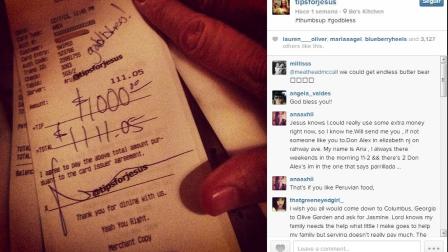 12/17/13, 11:45 PM
godbless!
@tipsforjesus
111.05
Amount:
$1000.00
+TIP
TOTAL $1111.05
I agree to pay the above total amount pur-
suant to the card issuer agreement.
@tipsforjesus
Thank you for dining with us.
Yeah You Right.
Merchant Copy
Seguir
tipsforjesus
Hace 1 semana - Bo's Kitchen
#thumbsup #godbless
lauren___oliver, mariaaagel, blueberryheels and 3,127
others like this.
millisss
@meatheadmccall we could get endless butter bear
□□□□
angela_valdes
God bless you!!
anaaxhil
Jesus knows I could really use some extra money
right now, so I know he.Will send me you , if not
someone like you to.Don Alex in elizabeth nj on
rahway ave. My name is Ana , I always there
weekends in the morning 11-2 && there's 2 Don
Alex's im in the one that says parrillada ...
anaaxhil
That's if you like Peruvian food,
thatgreeneyedgirl_
I wish you all would come down to Columbus, Georgia
to Olive Garden and ask for Jasmine. Lord knows my
family needs the help what little I make goes to help
my family but serving doesn't really pay much. The
Leave a comment...